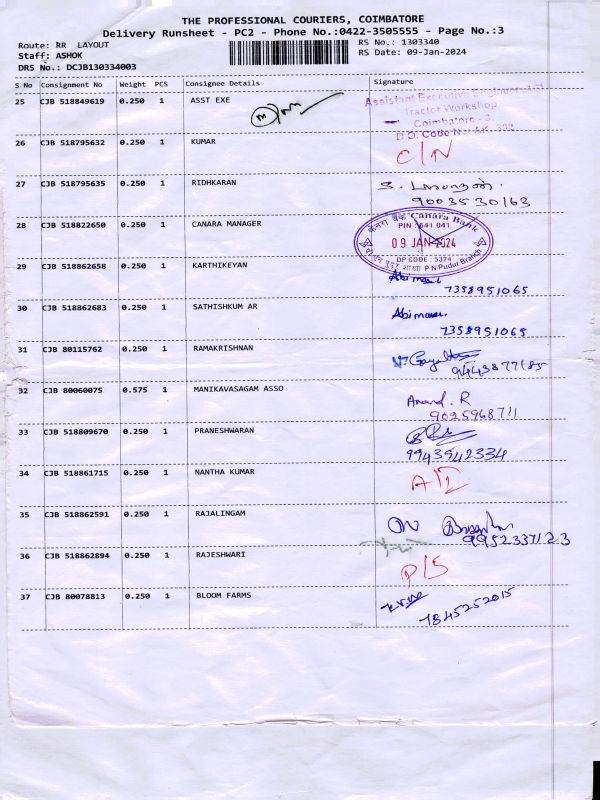 THE PROFESSIONAL COURIERS, COIMBATORE
Delivery Runsheet - PC2 - Phone No.:0422-3505555 - Page No.:3
Route: RR LAYOUT RS No.: 1303340
Staff: ASHOK RS Date: 09-Jan-2024
DRS No.: DCJB130334003
S No Consignment No Weight PCS Consignee Details Signature
25 CJB 518849619 0.250 1 ASST EXE
Assistant Executive
Tractor Workshop
Coimbatore - 3.
D.O. Code No:
26 CJB 518795632 0.250 1 KUMAR C/N
27 CJB 518795635 0.250 1 RIDHKARAN
9003530163
28 CJB 518822650 0.250 1 CANARA MANAGER
केनरा बैंक Canara Bank
PIN : 641 041
09 JAN 2024
DP CODE : 5374
P N Pudur Branch
29 CJB 518862658 0.250 1 KARTHIKEYAN
7358951065
30 CJB 518862683 0.250 1 SATHISHKUM AR
7358951065
31 CJB 80115762 0.250 1 RAMAKRISHNAN
9443877185
32 CJB 80060075 0.575 1 MANIKAVASAGAM ASSO Anand. R
33 CJB 518809670 0.250 1 PRANESHWARAN
9943942334
34 CJB 518861715 0.250 1 NANTHA KUMAR
35 CJB 518862591 0.250 1 RAJALINGAM
9952337123
36 CJB 518862894 0.250 1 RAJESHWARI P/S
37 CJB 80078813 0.250 1 BLOOM FARMS
7845252015